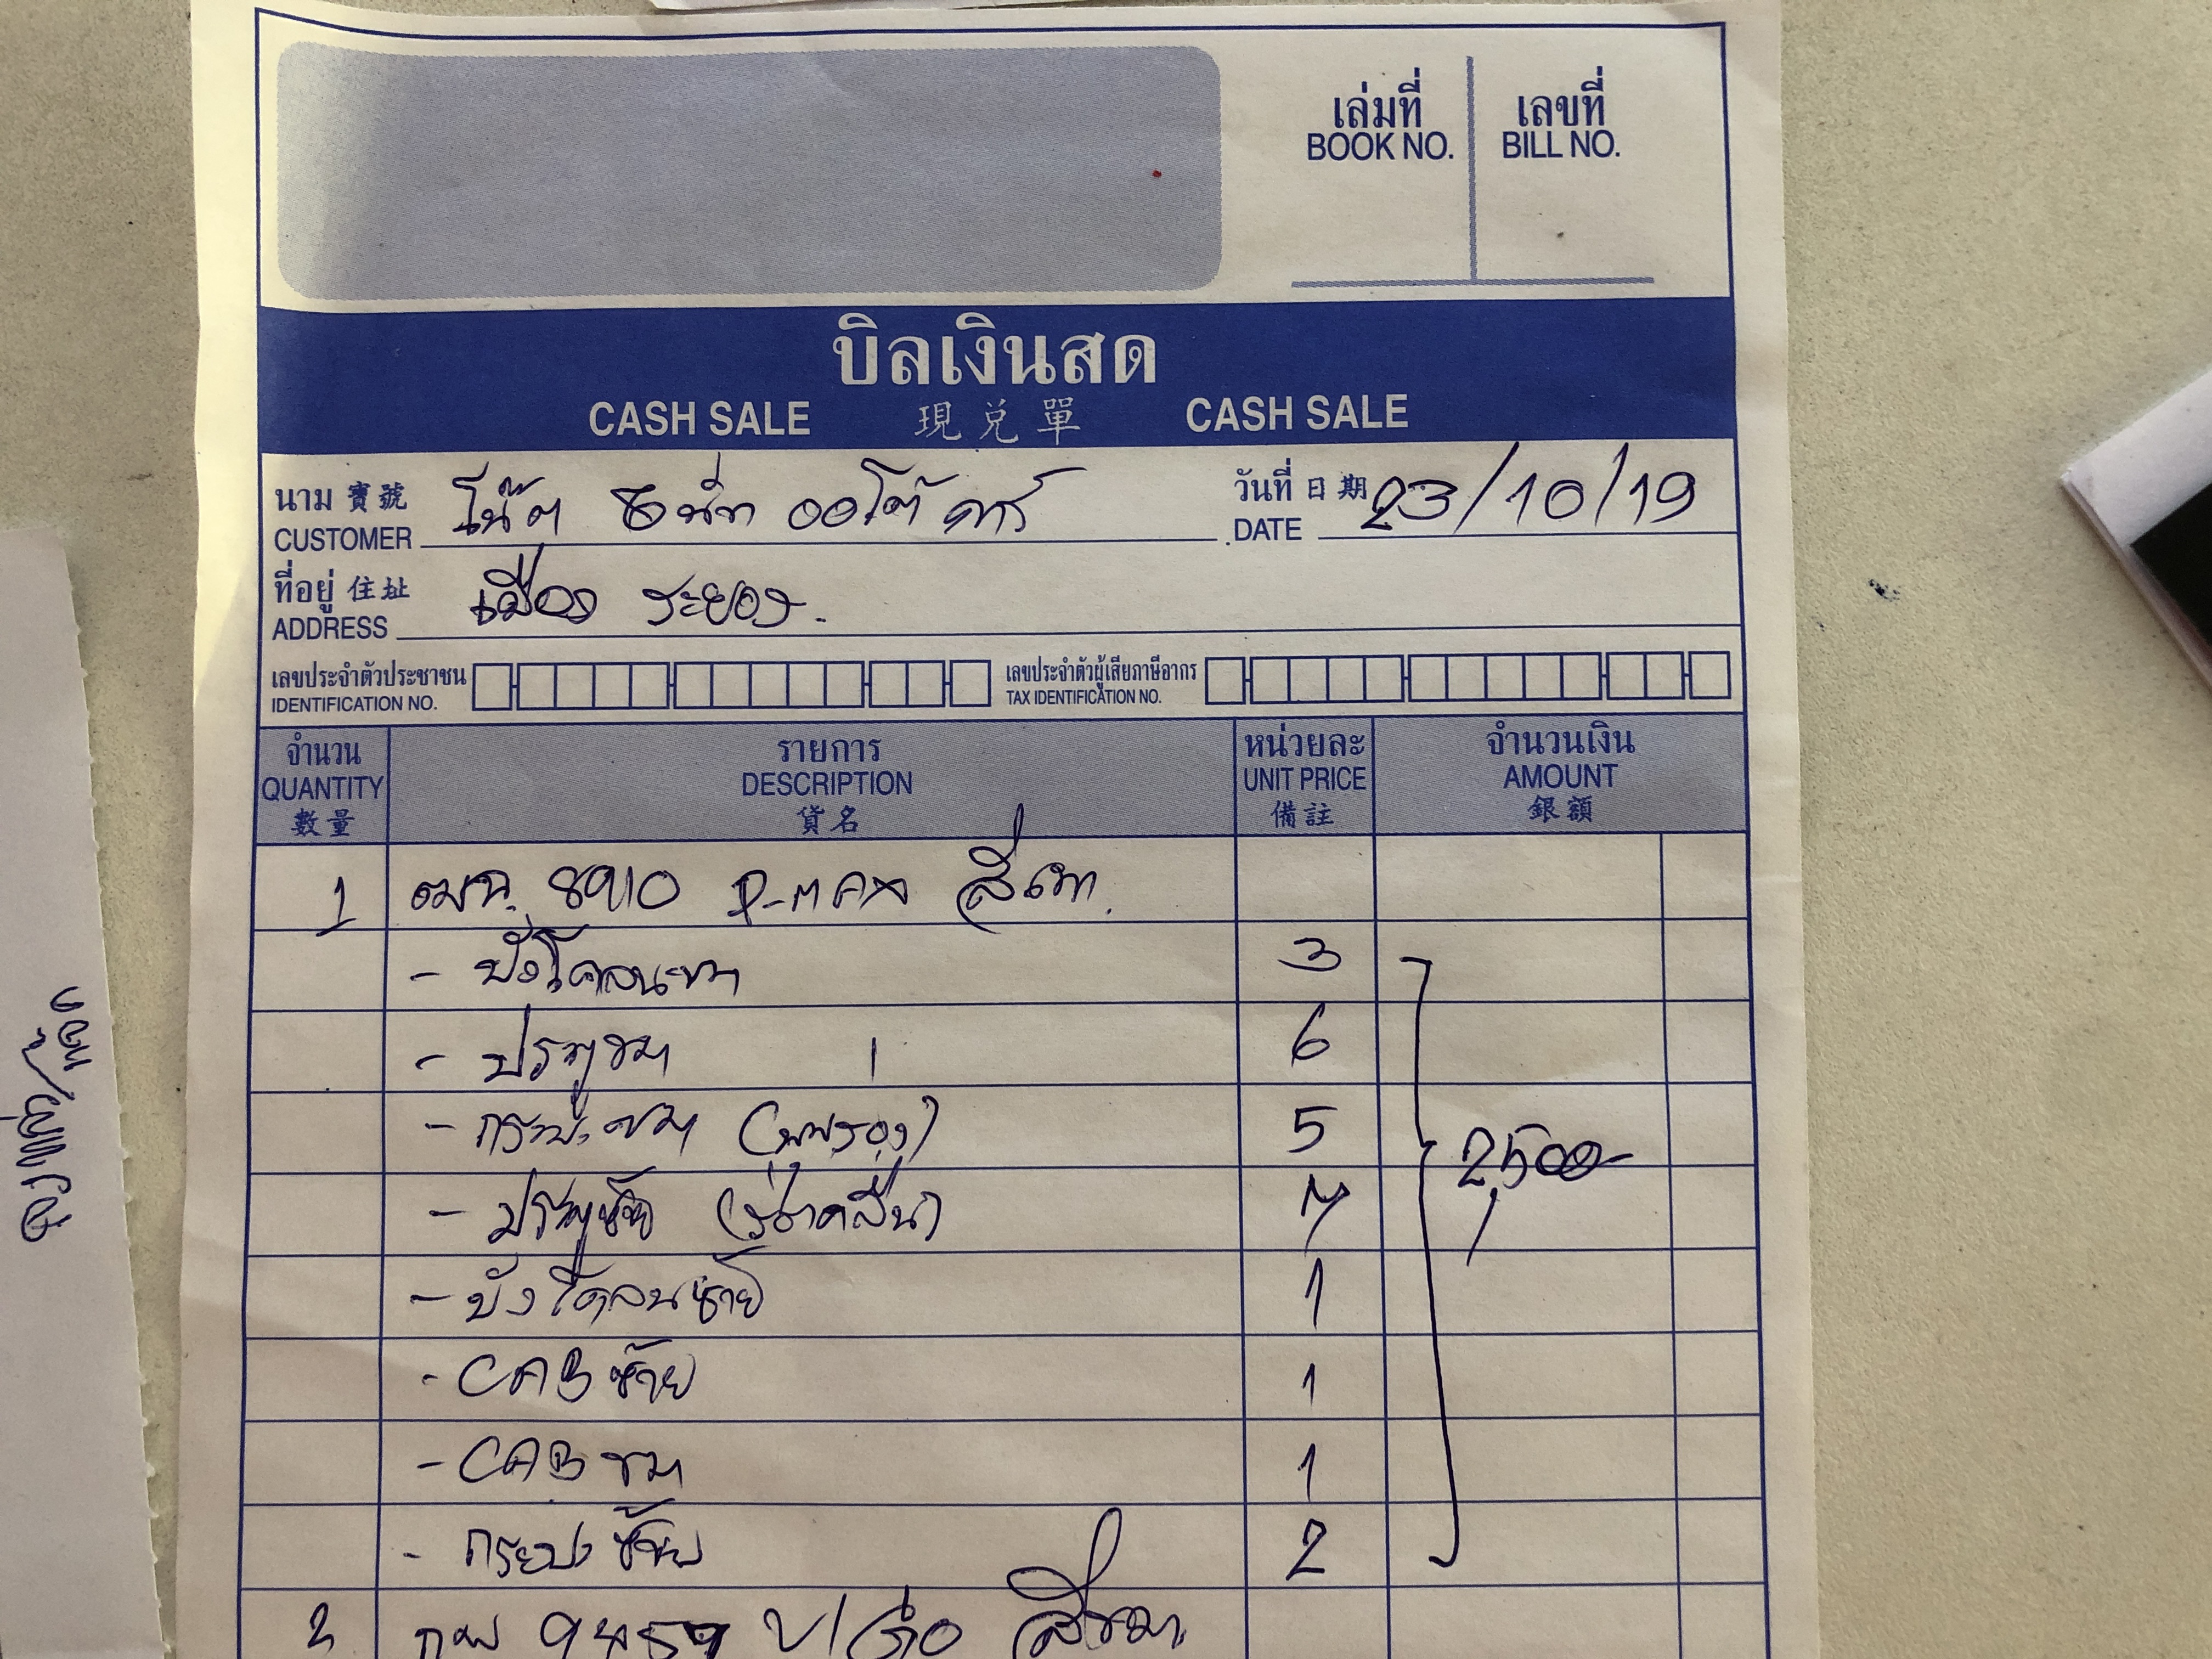 เล่มที่ เลขที่
BOOK NO. BILL NO.
บิลเงินสด
CASH SALE 現兌單 CASH SALE
นาม 寶號 โน๊ต ออโต้ คาร์ วันที่ 日期 23/10/19
CUSTOMER DATE
ที่อยู่ 住址 เมือง ระยอง.
ADDRESS
เลขประจำตัวประชาชน เลขประจำตัวผู้เสียภาษีอากร
IDENTIFICATION NO. TAX IDENTIFICATION NO.
จำนวน รายการ หน่วยละ จำนวนเงิน
QUANTITY DESCRIPTION UNIT PRICE AMOUNT
數量 貨名 備註 銀額
1 8910 D-MAX สีเทา.
- บังโคลนขวา 3
- ประตูขวา 1 6
- กระบะขวา 5
- ประตูซ้าย 7
2500-
- บังโคลนซ้าย 1
- CAB ซ้าย 1
- CAB ขวา 1
- กระบะซ้าย 2
2